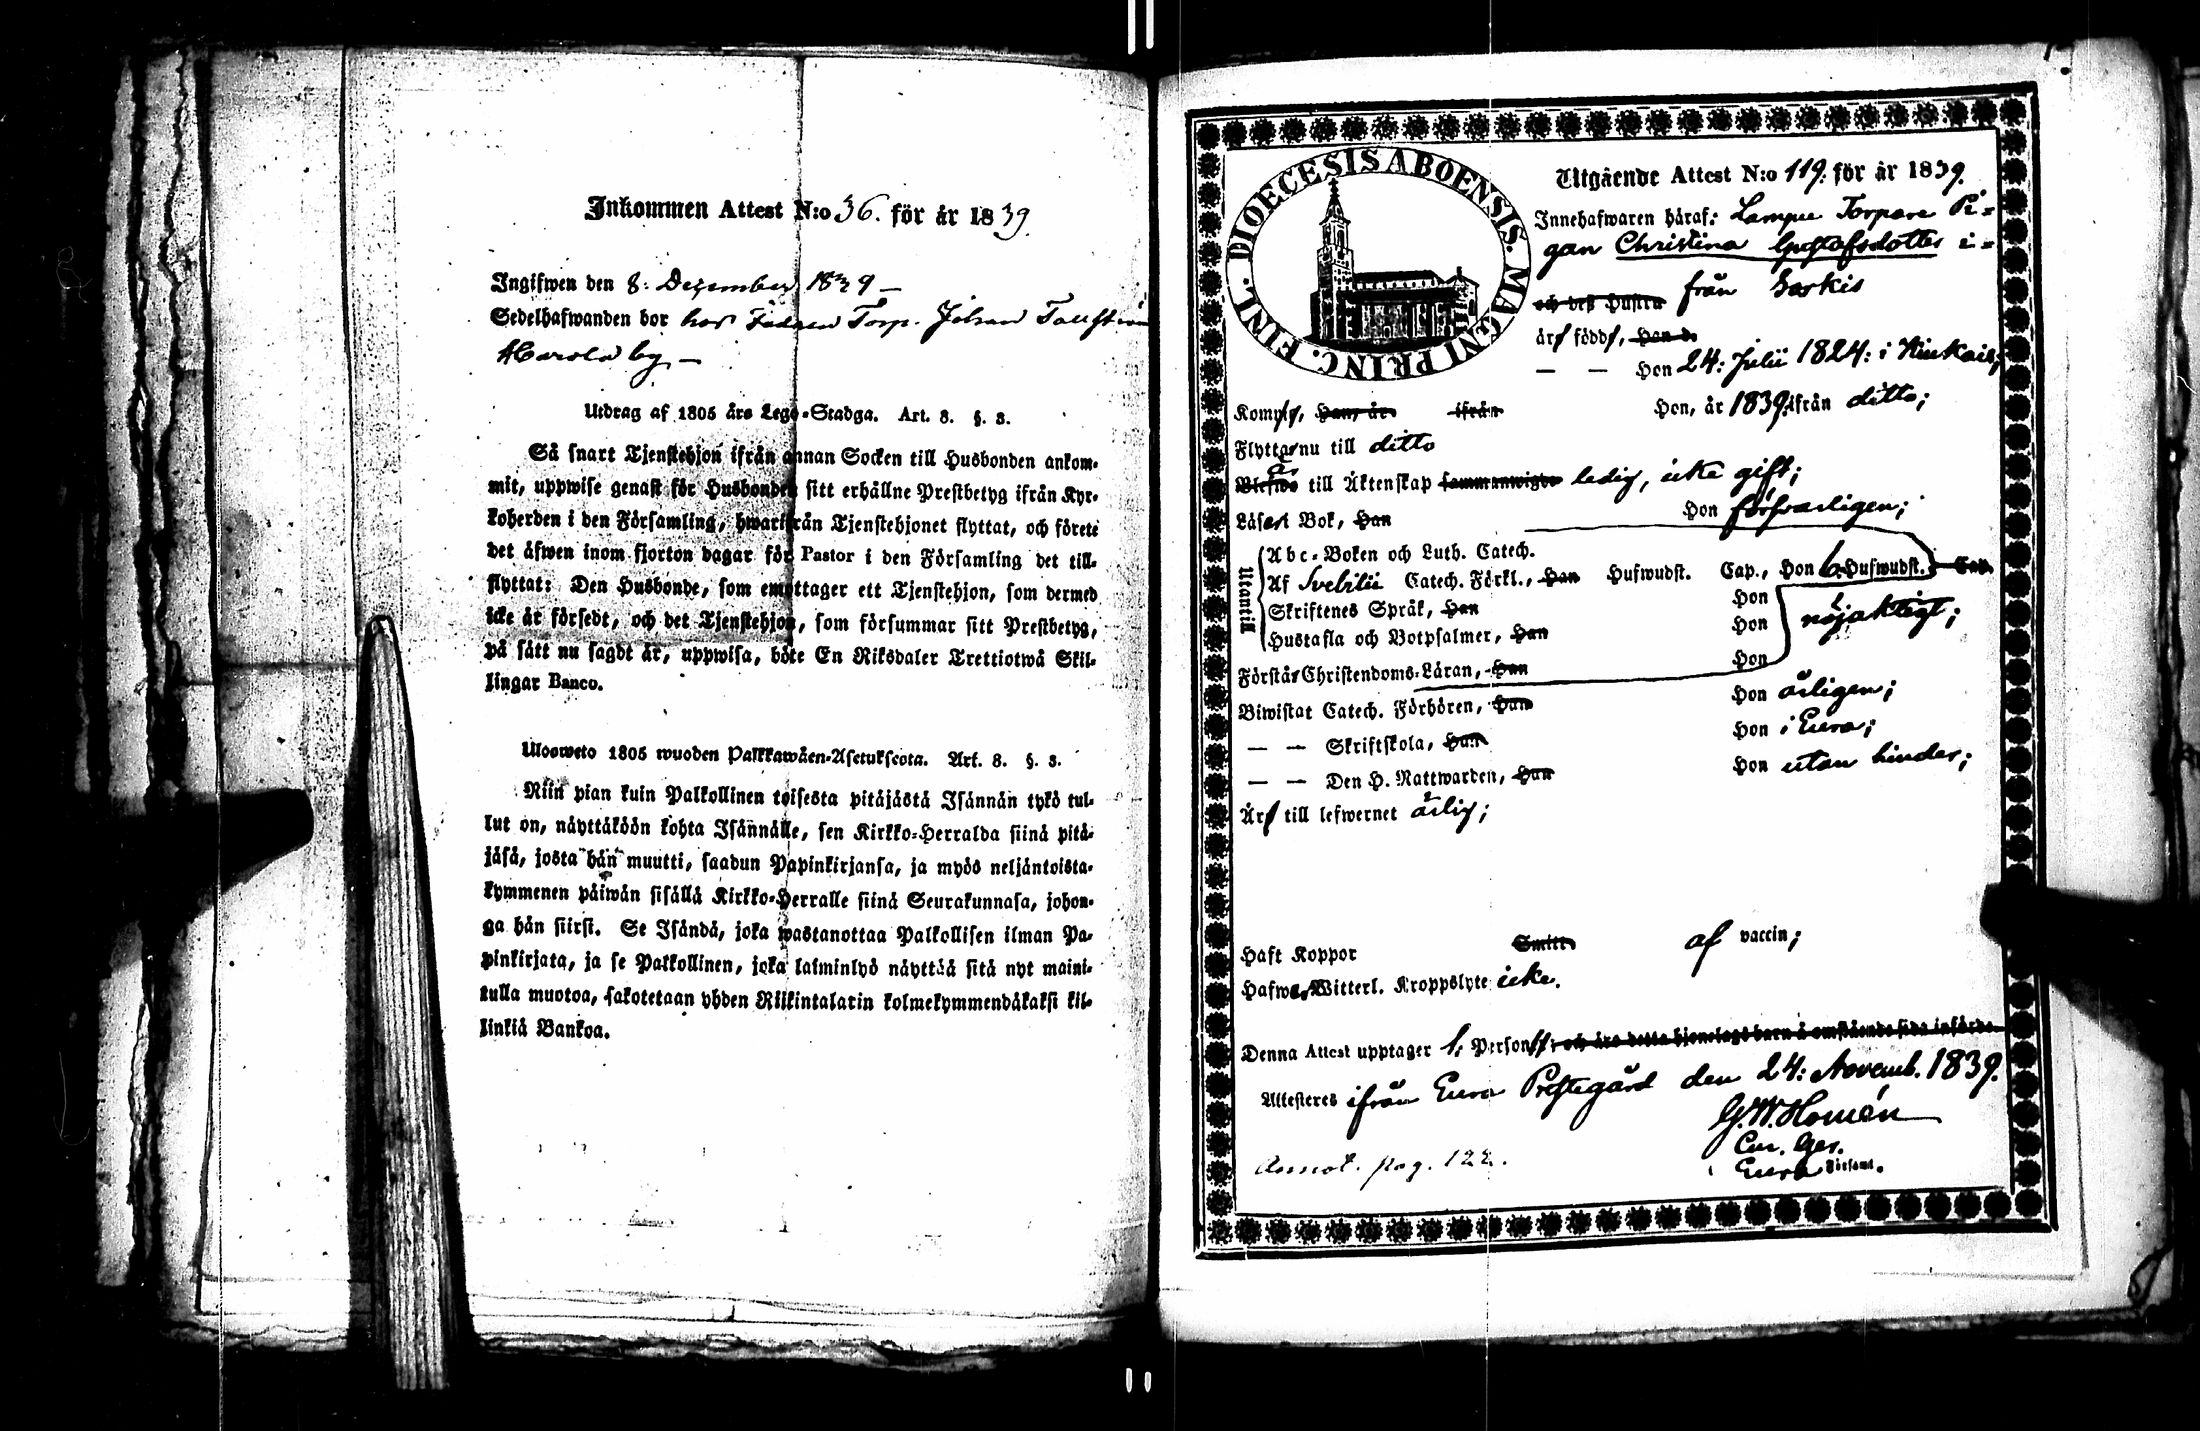 Inkommen Attest N:o 36. för år 1839.
Ingifwen den 8: December 1839 –
Sedelhafwanden bor hos Torp. Johan
by –
Utdrag af 1805 års Lego-Stadga. Art. 8. §. 3.
Så snart Tjenstehjon ifrån annan Socken till Husbonden ankom-
mit, uppwise genast för Husbonden sitt erhällne Prestbetyg ifrån Kyr-
koherden i den Församling, hwarifrån Tjenstehjonet flyttat, och förete
det äfwen inom fjorton dagar för Pastor i den Församling det till-
flyttat: Den Husbonde, som emottager ett Tjenstehjon, som dermed
icke är försedt, och det Tjenstehjon, som försummar sitt Prestbetyg,
på sätt nu sagdt är, uppwisa, böte En Riksdaler Trettiotwå Skil-
lingar Banco.
Ulosweto 1805 wuoden Palkkawäen-Asetuksesta. Art. 8. §. 3.
Niin pian kuin Palkollinen toisesta pitäjästä Isännän tykö tul-
lut on, näyttäköön kohta Isännälle, sen Kirkko-Herralda siinä pitä-
jäsä, josta hän muutti, saadun Papinkirjansa, ja myös neljäntoista-
kymmenen päiwän sisällä Kirkko-Herralle siinä Seurakunnasa, johon-
ga hän siirsi. Se Isändä, joka wastanottaa Palkollisen ilman Pa-
pinkirjata, ja se Palkollinen, joka laiminlyö näyttää sitä nyt maini-
tulla muotoa, sakotetaan yhden Riikintalarin kolmekymmendäkaksi kil-
linkiä Bankoa.
DIOECESIS ABOENSIS. MAGNI PRINC. FINL.
Utgående Attest N:o 119. för år 1839.
Innehafwaren häraf: Lampu Torpare Pi-
gan Christina Gustafsdotter i-
och dess Hustru från
är född, Han d.
— — Hon 24: Julii 1824: i Kiukais;
Kom, Han, år ifrån Hon, år 1839 ifrån ditto;
Flyttar nu till ditto
är till Äktenskap sammanwigde ledig, icke gift;
Läser i Bok, Han Hon förswarligen;
Utantill
Abc-Boken och Luth. Catech.
Af Svebilii Catech. Förkl., Han Hufwudst. Cap., Hon 6. Hufwudst. Cap.
Skriftenes Språk, Han Hon
Hustafla och Botpsalmer, Han Hon nöjaktigt;
Förstår Christendoms-Läran, Han Hon
Biwistat Catech. Förhören, Han Hon årligen;
— — Skriftskola, Han Hon i Eura;
— — Den H. Nattwarden, Han Hon utan hinder;
Är till lefwernet ärlig;
Haft Koppor Smitt. af vaccin;
Hafwer Witterl. Kroppslyte icke.
Denna Attest upptager 1. Person; och äro detta hjonelags barn å omstående sida införde.
Attesteres ifrån Eura Prestegård den 24: Novemb. 1839.
G.W. Homén
Cur. Ger.
Eura Församl.
Annot. pag. 122.